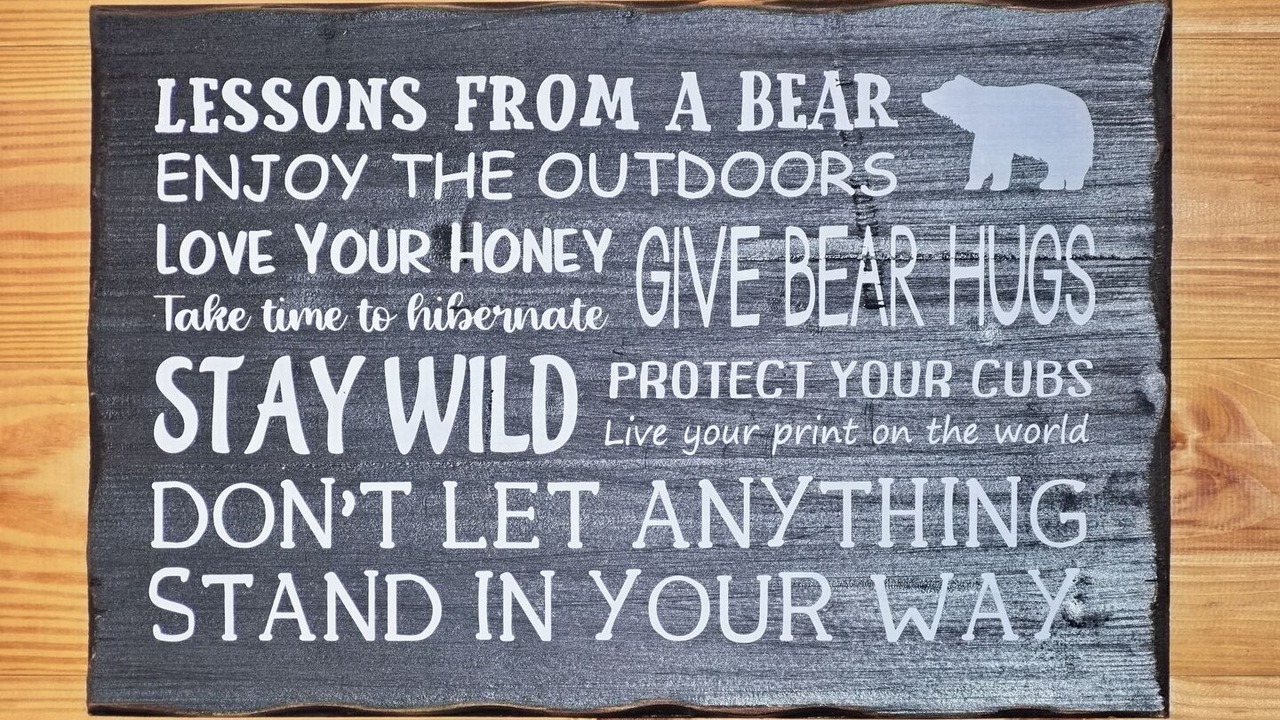 LESSONS FROM A BEAR
ENJOY THE OUTDOORS
LOVE YOUR HONEY
Take time to hibernate
GIVE BEAR HUGS
STAY WILD
PROTECT YOUR CUBS
Live your print on the world
DON'T LET ANYTHING
STAND IN YOUR WAY